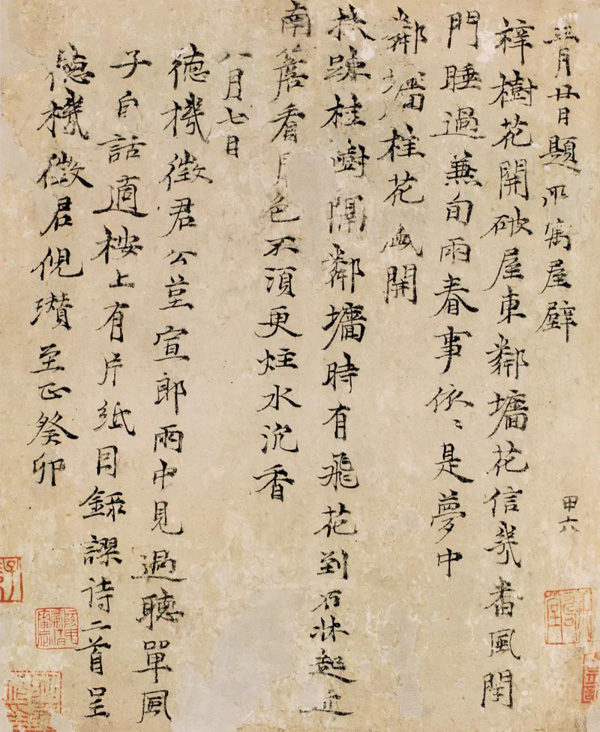 三月廿日題所寓屋壁
梓樹花開破屋東鄰墻花信幾番風閉
門睡過兼旬雨春事依〻是夢中
鄰墻桂花盛開
扶踈桂樹隔鄰墻時有飛花到石牀起近
南簷看月色不須更炷水沉香
八月七日
德機徵君公莖宣郎雨中見過聽單風
子白話適桉上有片紙因錄謬詩二首呈
德機徵君倪瓚至正癸卯
甲六